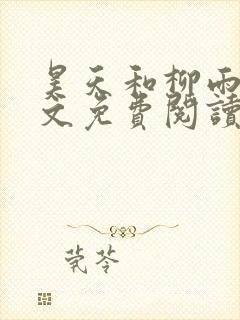 昊天和柳雨
文免費閱讀
芫苓